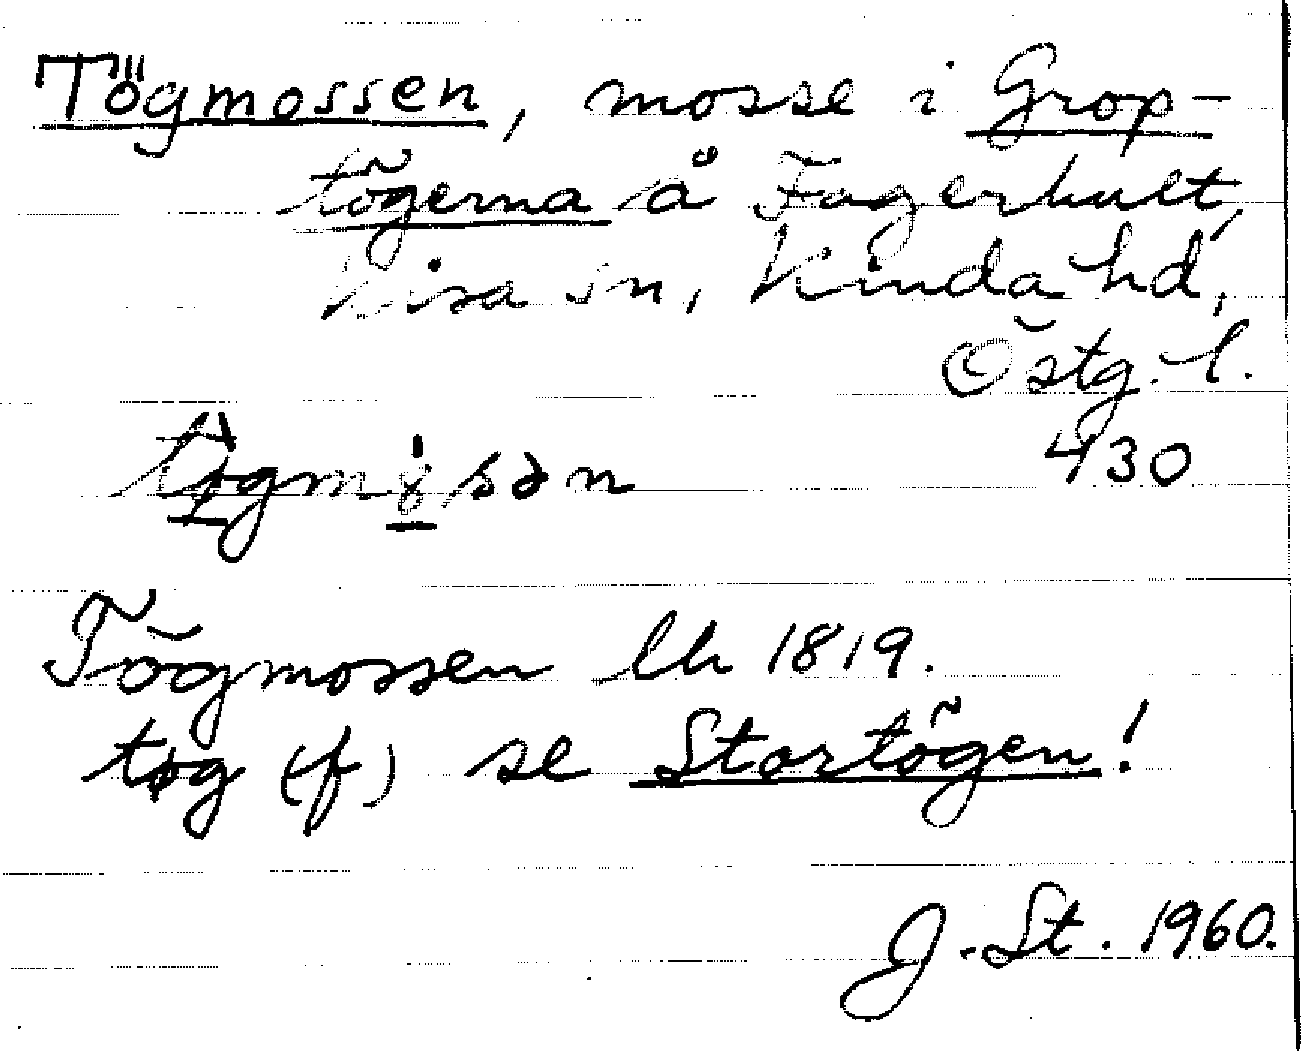 Tögmossen, mosse i Grop-
tögerna å Fagerhult,
Kisa sn, Kinda hd,
Östg. l.
430
tø̀gmȯ̀sən
Tögmossen lh 1819.
tøg (f) se Stortögen!
J. St. 1960.